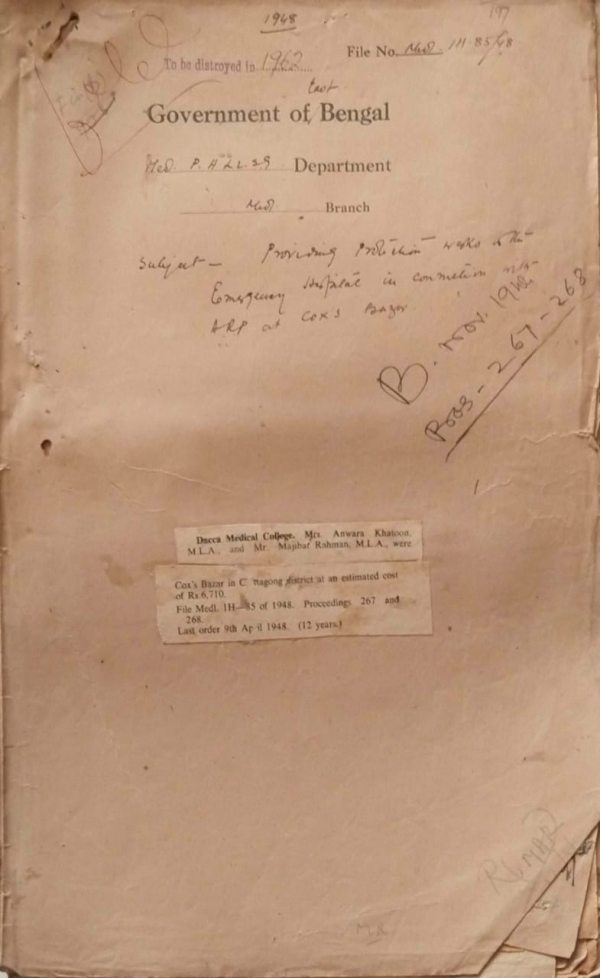 1948
197
File No. Med. 1H-85/48
To be distroyed in 1962
East
Government of Bengal
Med. P. H & L. S. G Department
Med Branch
Subject — Providing Protection works to the
Emergency Hospital in connection with
ARP at Cox's Bazar
B. Nov. 1948
Pros - 267-268
Dacca Medical College. Mrs. Anwara Khatoon,
M.L.A., and Mr. Majibar Rahman, M.L.A., were
Cox's Bazar in C ttagong district at an estimated cost
of Rs.6,710.
File Medl. 1H—85 of 1948. Proceedings 267 and
268.
Last order 9th April 1948. (12 years.)